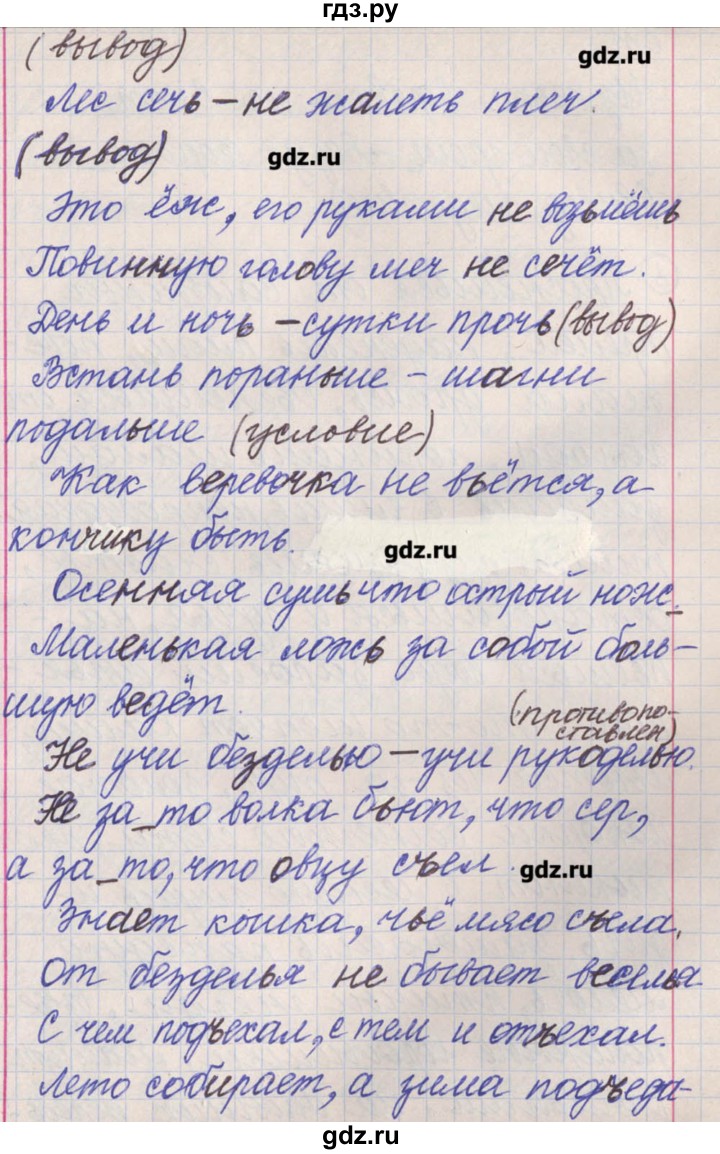 гдз.ру
(вывод) gdz.ru
Лес сечь – не жалеть плеч.
(вывод) gdz.ru
Это ёж, его руками не возьмёшь
Повинную голову меч не сечёт.
День и ночь – сутки прочь (вывод)
Встань пораньше – шагни
подальше (условие)
Как веревочка не вьётся, а
кончику быть. gdz.ru
Осенняя сушь что острый нож.
Маленькая ложь за собой боль-
шую ведёт.
(противопо-
ставлен)
Не учи безделью – учи рукоделью.
Не за_то волка бьют, что сер,
а за_то, что овцу съел. gdz.ru
Знает кошка, чьё мясо съела.
От безделья не бывает веселья
С чем подъехал, с тем и отъехал.
Лето собирает, а зима подъеда-
gdz.ru